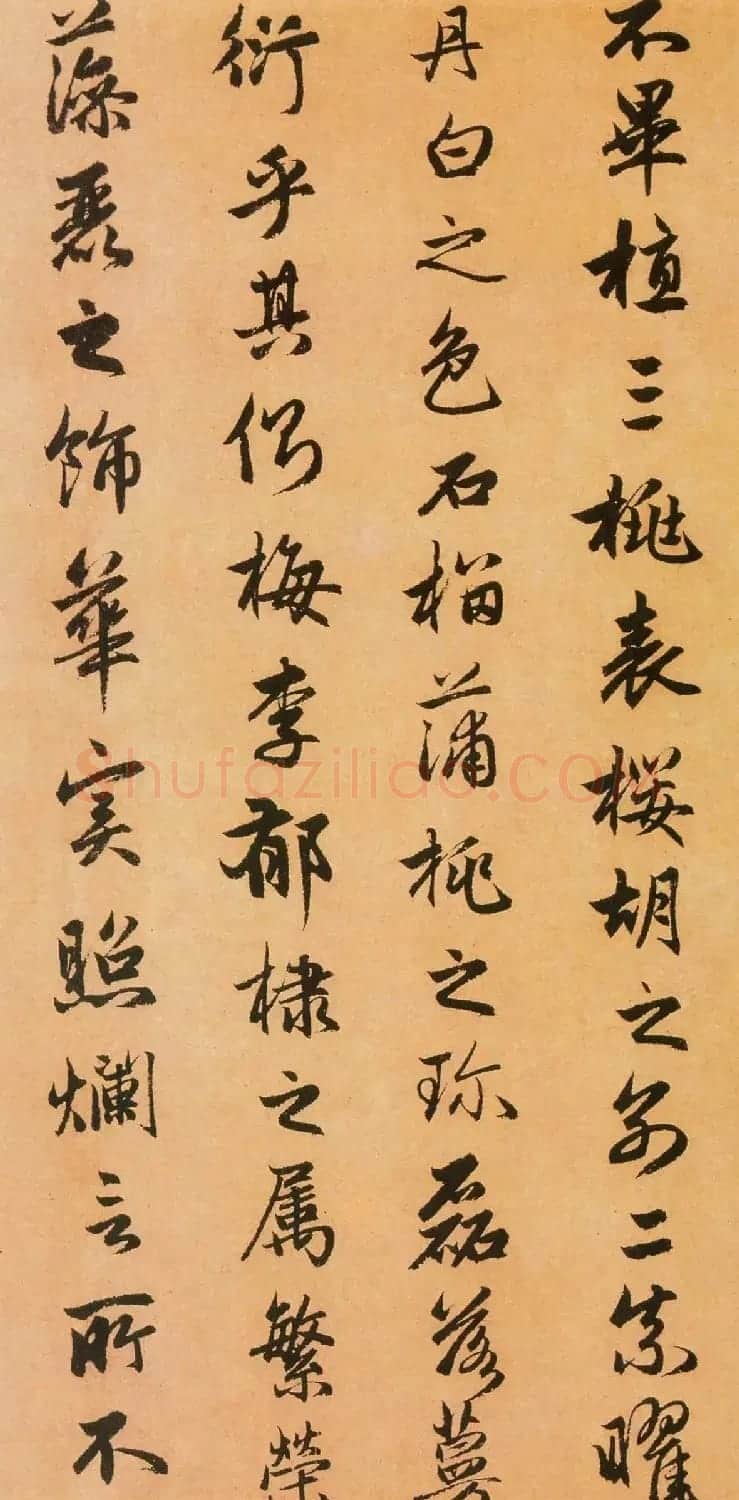 不畢植三桃表櫻胡之别二柰曜
丹白之色石榴蒲桃之珍磊落蔓
衍乎其側梅李郁棣之属繁榮
藻麗之飾華實照爛言所不
shufaziliao.com